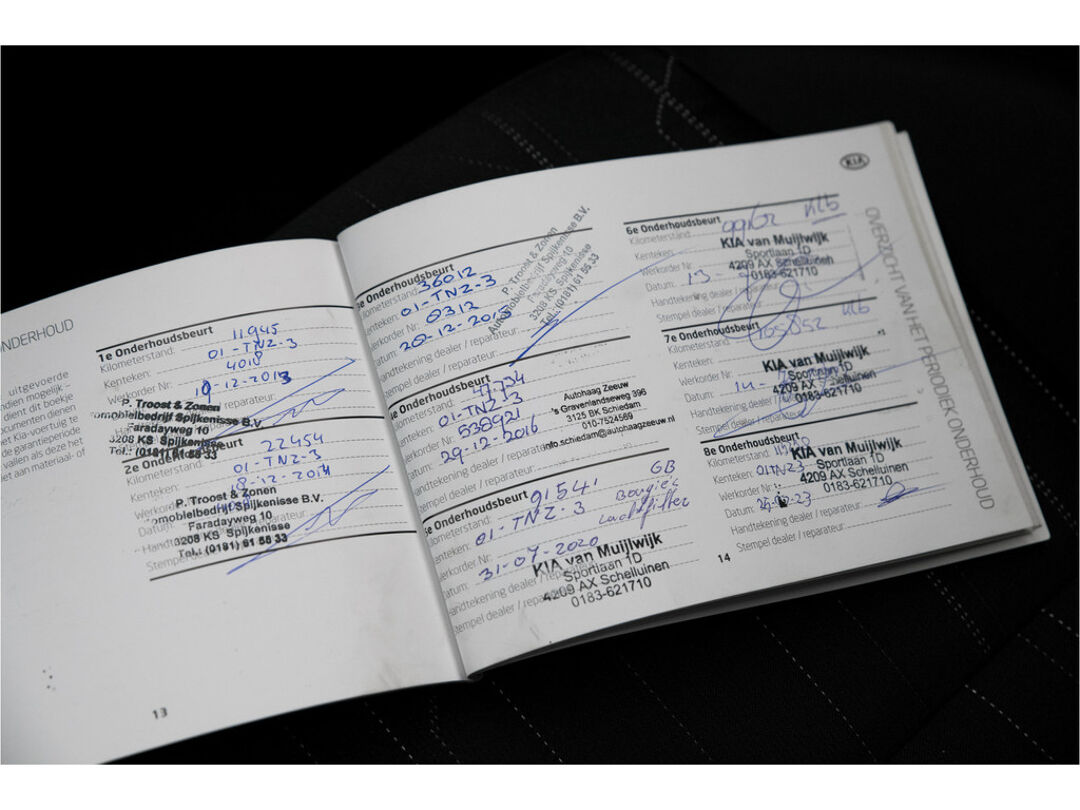 ONDERHOUD
uitgevoerde
dient dit boekje
het Kia-voertuig te
garantieperiode
vallen als deze niet
aan materiaal- of
1e Onderhoudsbeurt
Kilometerstand: 11945
Kenteken: 01-TNZ-3
Werkorder Nr: 4018
10-12-2013
P. Troost & Zonen
omobielbedrijf Spijkenisse B.V.
Faradayweg 10
3208 KS Spijkenisse
Tel.: (0181) 61 55 33
2e Onderhoudsbeurt
Kilometerstand: 22454
Kenteken: 01-TNZ-3
18-12-2014
P. Troost & Zonen
omobielbedrijf Spijkenisse B.V.
Faradayweg 10
3208 KS Spijkenisse
Tel.: (0181) 61 55 33
13
e Onderhoudsbeurt
lometerstand: 36012
enteken: 01-TNZ-3
erkorder Nr: 0312
atum: 20-12-2015
ndtekening dealer / reparateur:
tempel dealer / reparateur:
P. Troost & Zonen
Automobielbedrijf Spijkenisse B.V.
Faradayweg 10
3208 KS Spijkenisse
Tel.: (0181) 61 55 33
e Onderhoudsbeurt
lometerstand: 47734
enteken: 01-TNZ-3
erkorder Nr: 538921
atum: 29-12-2016
ndtekening dealer / reparateur:
tempel dealer / reparateur:
Autohaag Zeeuw
's Gravenlandseweg 396
3125 BK Schiedam
010-7524569
info.schiedam@autohaagzeeuw.nl
5e Onderhoudsbeurt
ometerstand: 91541
enteken: 01-TNZ-3
erkorder Nr:
atum: 31-07-2020
GB
Bougies
Luchtfilter
andtekening dealer / reparateur:
tempel dealer / reparateur:
KIA van Muijlwijk
Sportlaan 1D
4209 AX Schelluinen
0183-621710
KIA
6e Onderhoudsbeurt
Kilometerstand: 99162
Kenteken:
Werkorder Nr:
Datum: 13-
Handtekening dealer /
Stempel dealer / reparateur:
KIA van Muijlwijk
Sportlaan 1D
4209 AX Schelluinen
0183-621710
7e Onderhoudsbeurt
Kilometerstand: 105852
Kenteken:
Werkorder Nr:
Datum: 14-
Handtekening dealer
Stempel dealer / reparateur:
KIA van Muijlwijk
Sportlaan 1D
4209 AX Schelluinen
0183-621710
8e Onderhoudsbeurt
Kilometerstand:
Kenteken: 01TNZ3
Werkorder Nr:
Datum:
Handtekening dealer / reparateur:
Stempel dealer / reparateur:
KIA van Muijlwijk
Sportlaan 1D
4209 AX Schelluinen
0183-621710
14
OVERZICHT VAN HET PERIODIEK ONDERHOUD